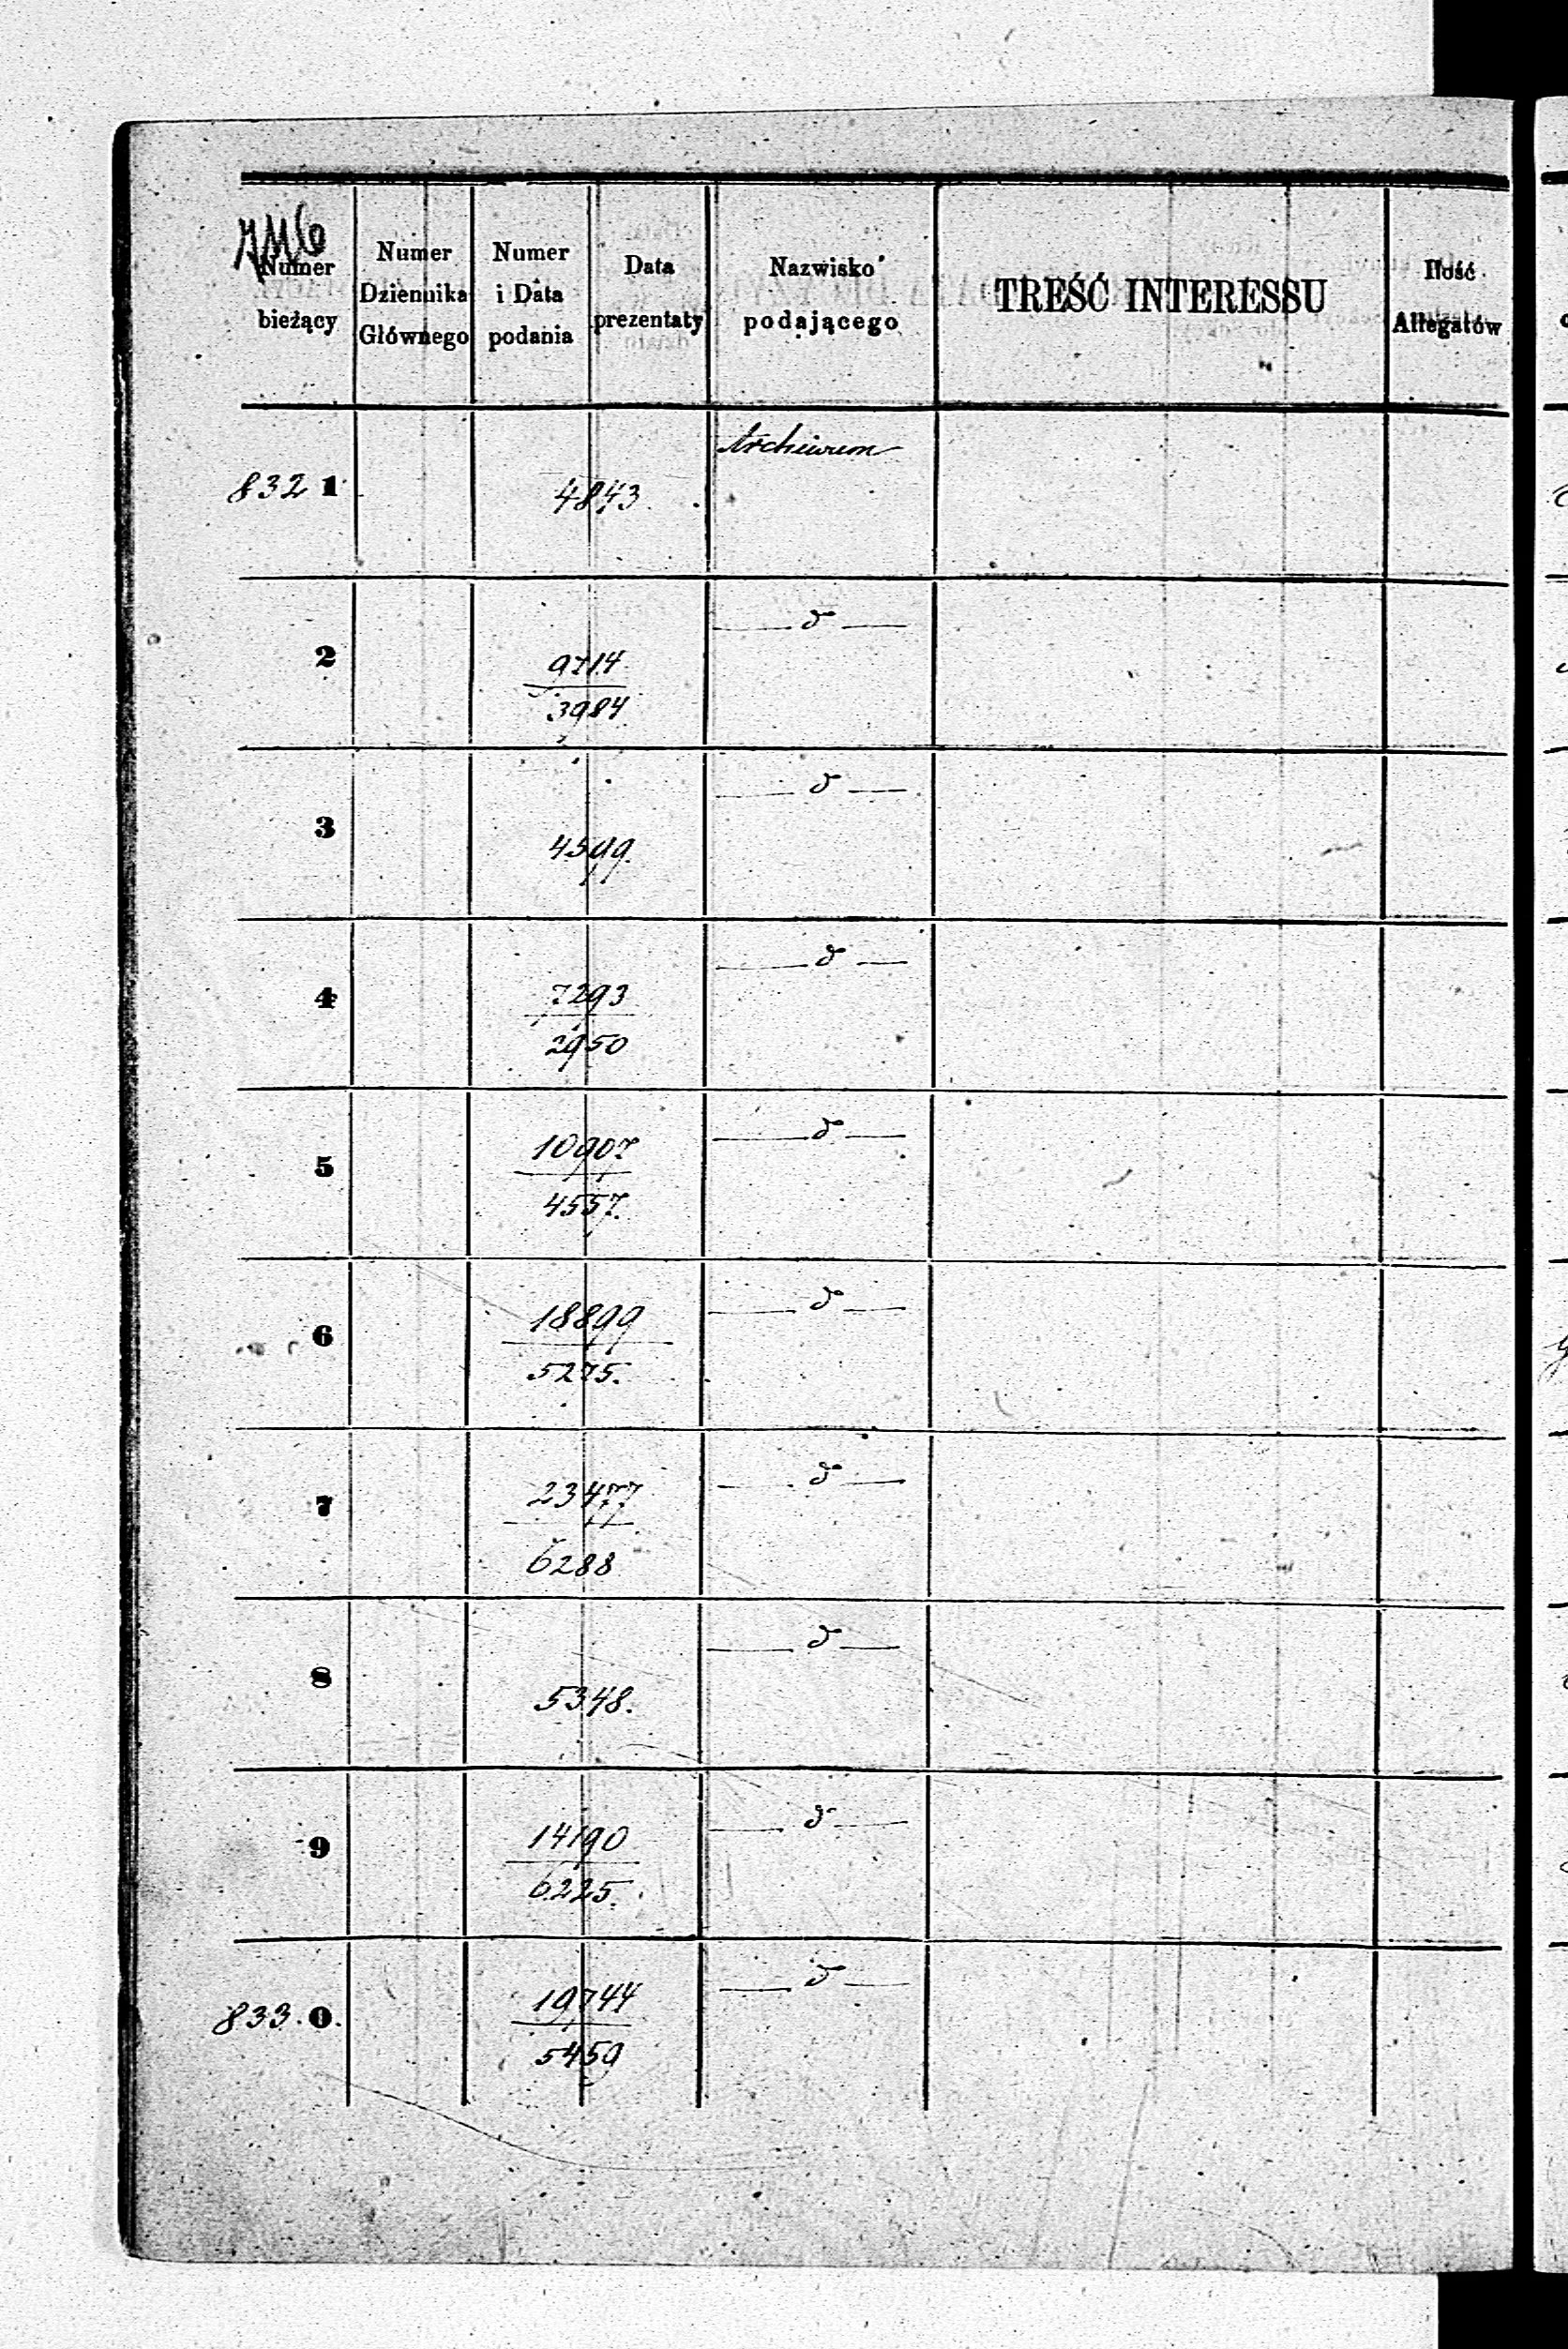 Numer bieżący | Numer Dziennika Głównego | Numer i Data podania | Data prezentaty | Nazwisko podającego | TREŚĆ INTERESSU | Ilość Allegatów
832 1 | 4843. | Archiwum
2 | 9714 / 3984 | — d° —
3 | 4599. | — d° —
4 | 7293 / 2950 | — d° —
5 | 10907 / 4557. | — d° —
6 | 18899 / 5275. | — d° —
7 | 23477 / 6288 | — d° —
8 | 5348. | — d° —
9 | 14190 / 6225. | — d° —
833. 0. | 19744 / 5459 | — d° —